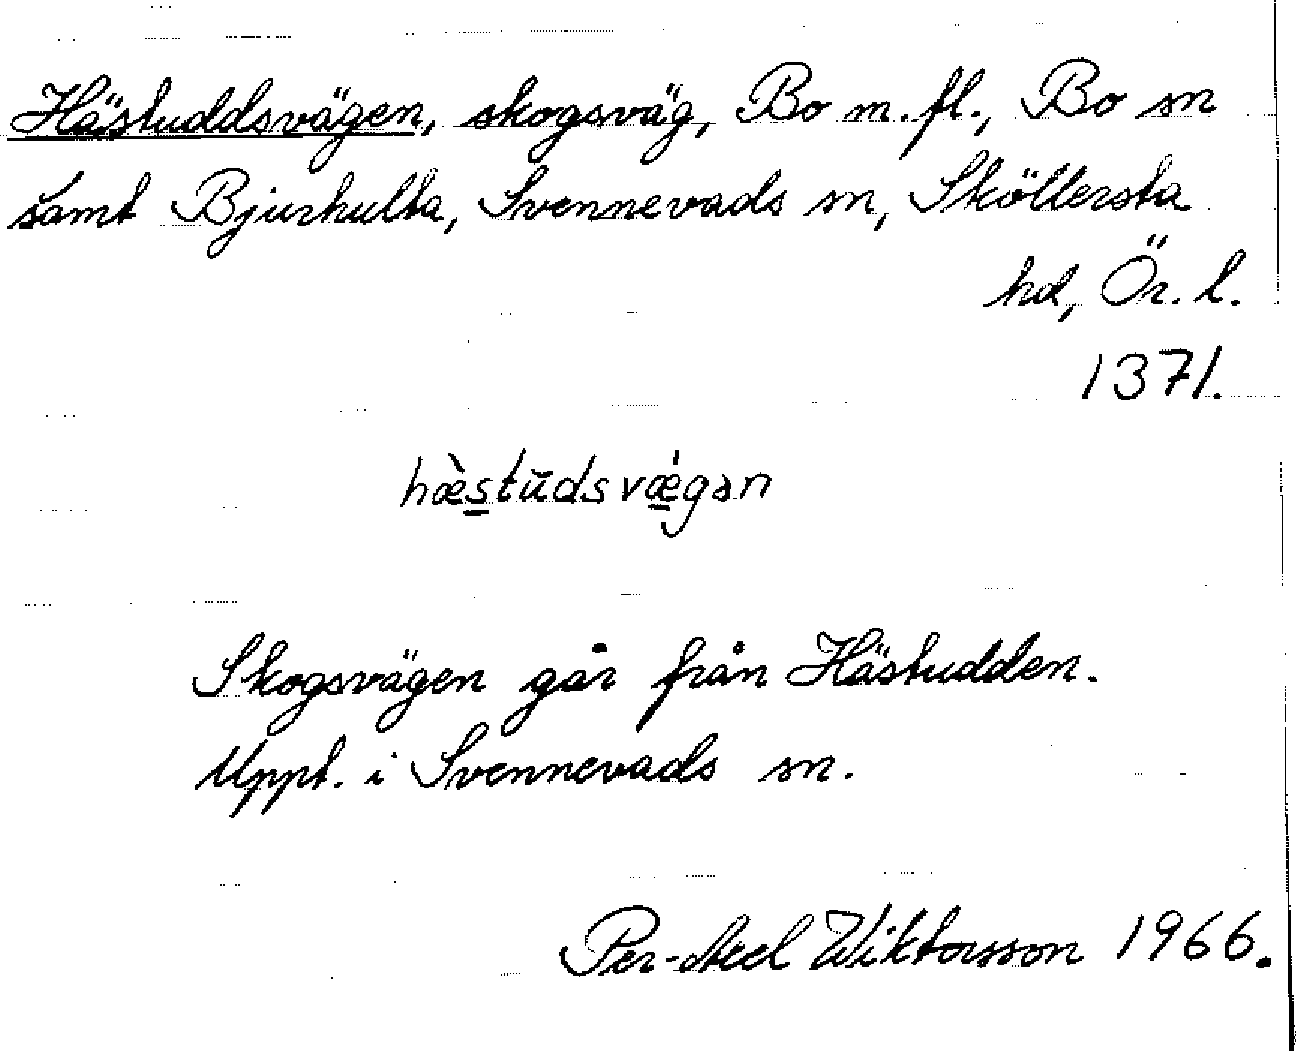 Hästuddsvägen, skogsväg, Bo m.fl., Bo sn
samt Bjurhulta, Svennevads sn, Sköllersta
hd, Ör. l.
1371.
hæ̀s̲tŭdsvǽ̲gən
Skogsvägen går från Hästudden.
Uppt. i Svennevads sn.
Per-Axel Wiktorsson 1966.